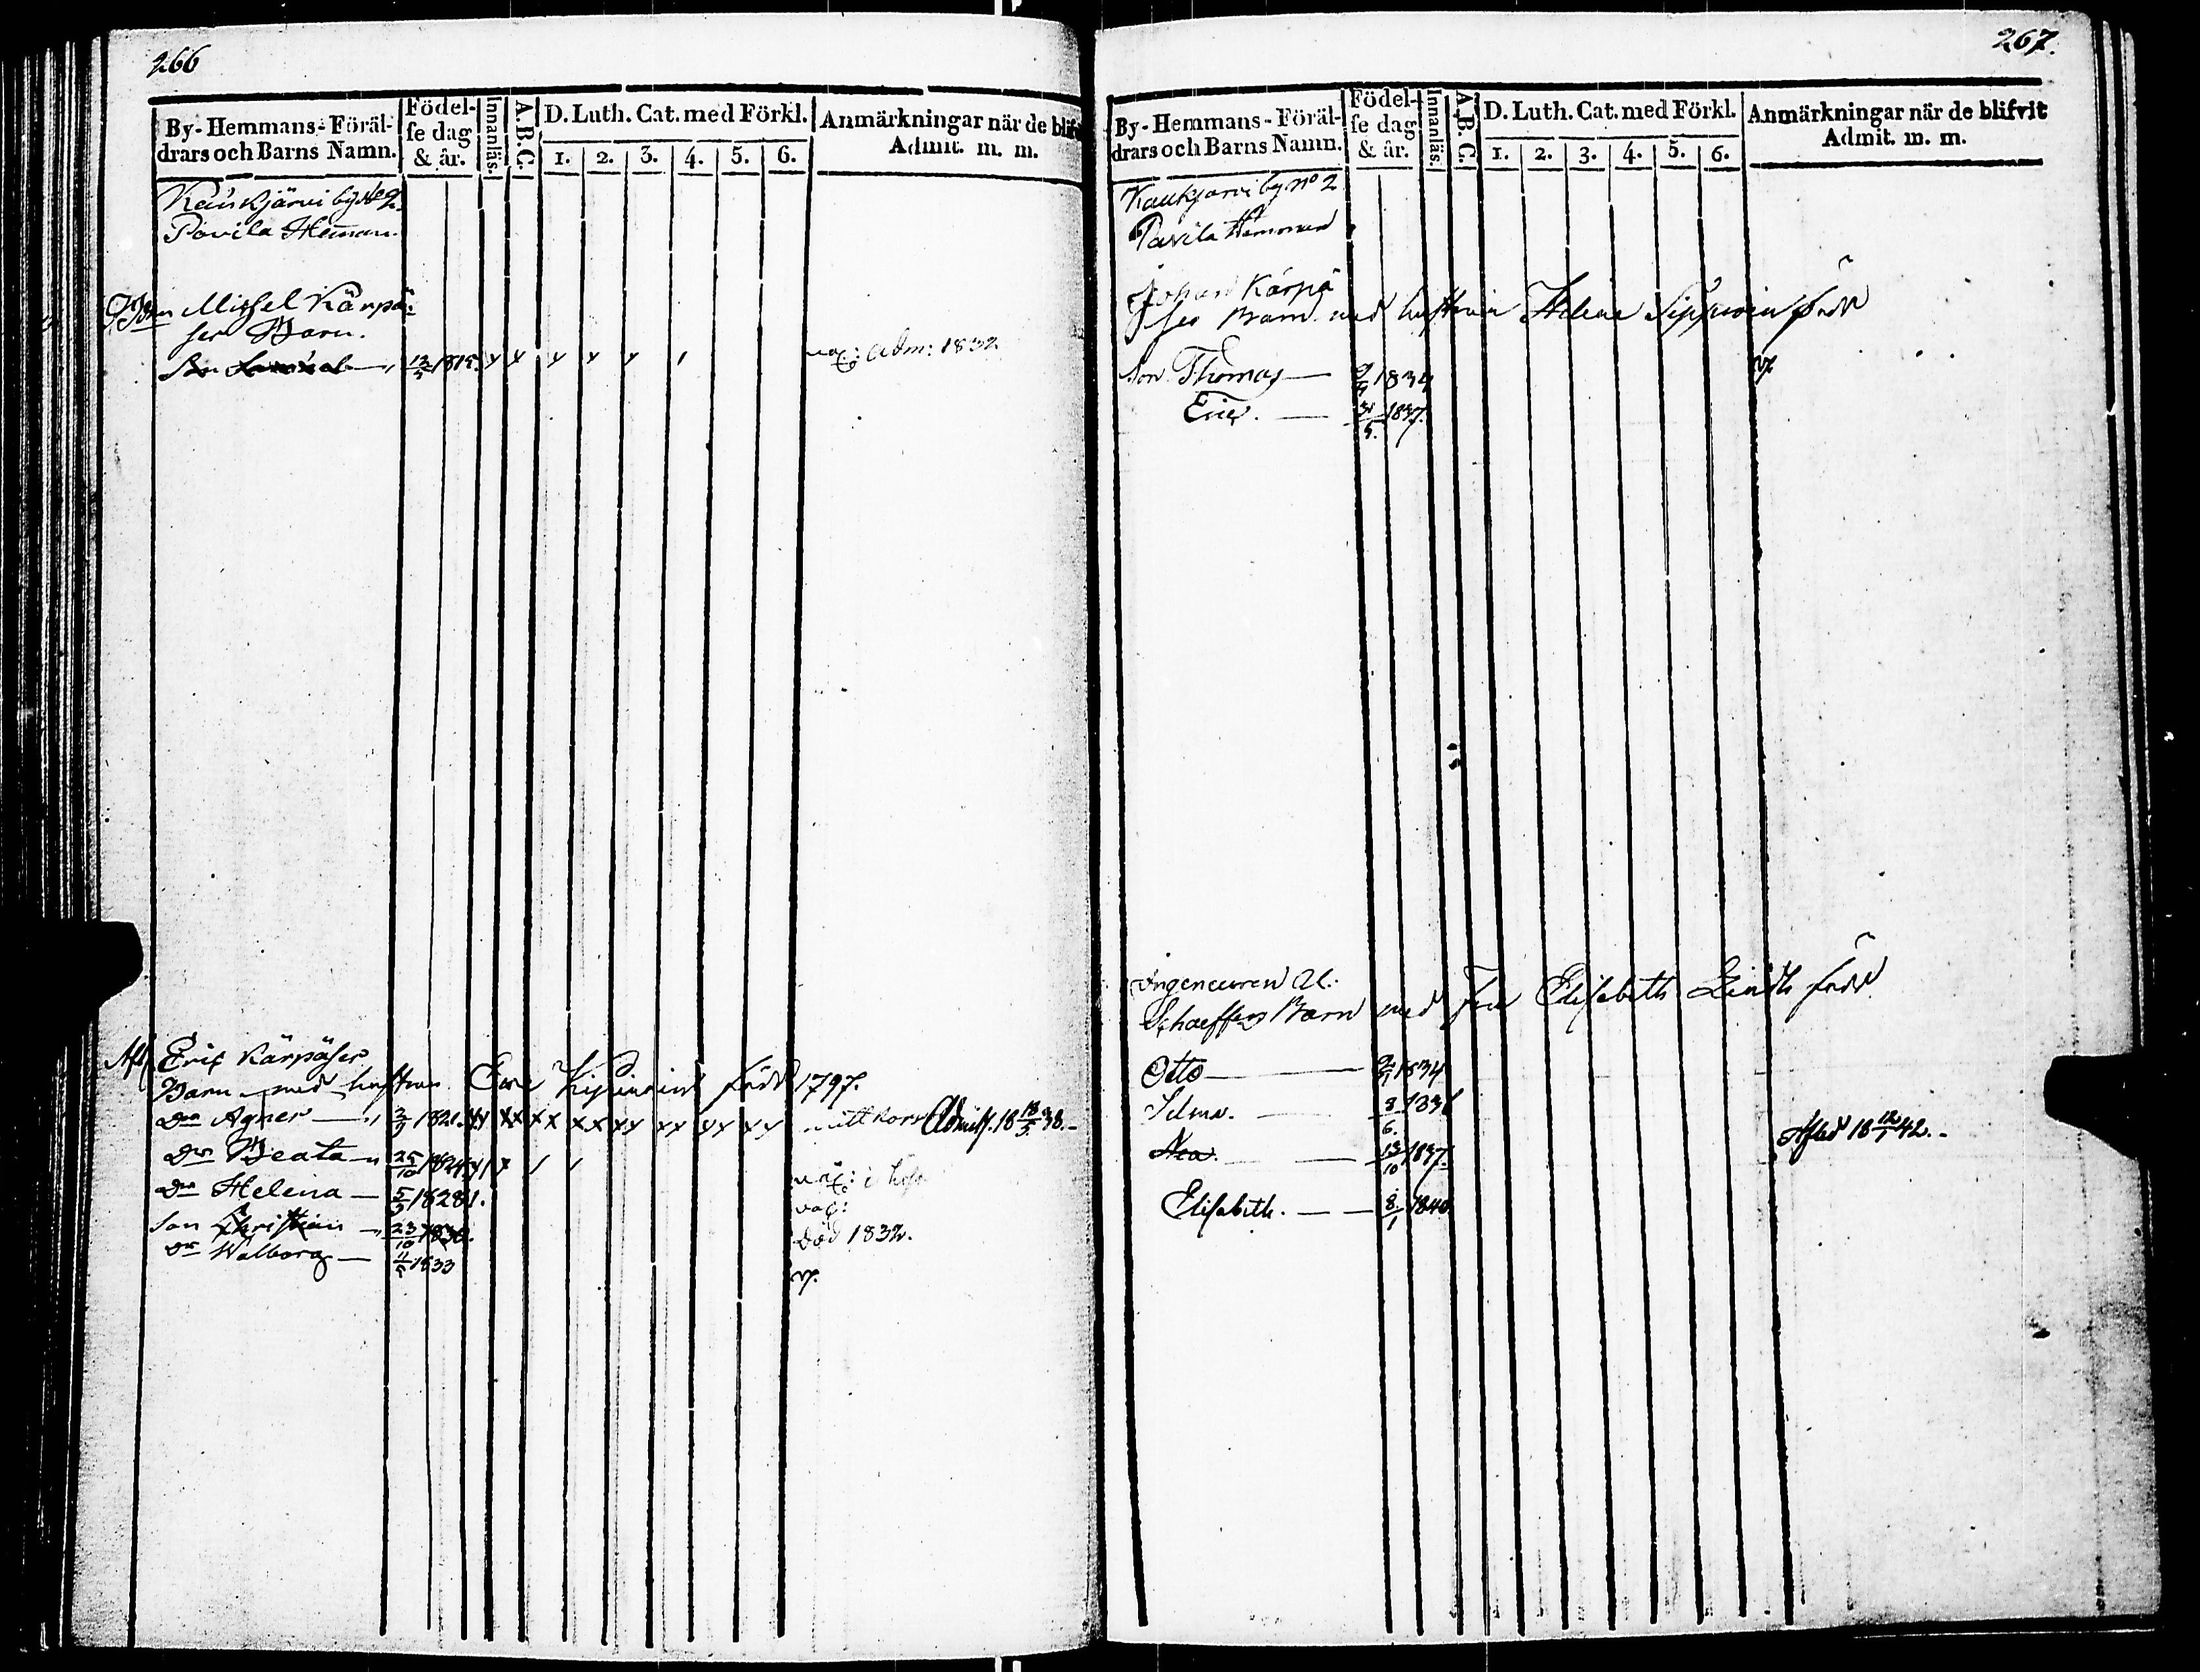 266
By-Hemmans-Föräl-
drars och Barns Namn.
Födel-
se dag
& år.
Innanläs.
A.B.C.
D. Luth. Cat. med Förkl.
1. 2. 3. 4. 5. 6.
Anmärkningar när de blif
Admit. m. m.
Kaukjärvi by No 2.
Pavila Hemman.
Michel Kärpä-
ses Barn.
13/5 1815. x x x x x / Adm: 1832
Afl Eric Kärpäses
Barn med hustrun Eva född 1797.
Dr Agnes — 1821. xx xx xx xx xx xx xx xx Admitt. 18 18/3 38.-
Dr Beata — 25/10 1824
Dr Helena — 5/3 1828
Son Christian — 23/10 1830. död 1832.
Dr Walborg — 1833 v.
267.
By-Hemmans-Föräl-
drars och Barns Namn.
Födel-
se dag
& år.
Innanläs.
A.B.C.
D. Luth. Cat. med Förkl.
1. 2. 3. 4. 5. 6.
Anmärkningar när de blifvit
Admit. m. m.
Kaukjarvi by No 2
Pavila Hemman
Johan Kärpä
ses Barn med hustrun Helena född
Son Thomas — 1834 v.
Eric. — 1837.
Ingeneuren Al.
Schaeffers Barn med Fru Elisabeth Lindh född
Otto — 1834
Selma. — 8/6. 1836
13/10 1837. Afled 18 12/1 42.-
Elisabeth. — 8/1 1840